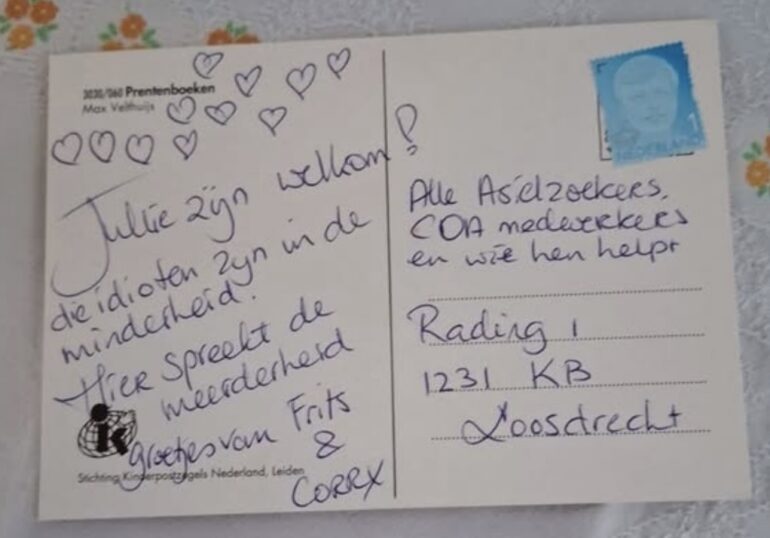 3030/060 Prentenboeken
Max Velthuijs
Jullie zijn welkom!
die idioten zijn in de
minderheid.
Hier spreekt de
meerderheid
groetjes van Frits
&
CORRX
ik
Stichting Kinderpostzegels Nederland, Leiden
1
NEDERLAND
Alle Asielzoekers,
COA medewerkers
en wie hen helpt
Rading 1
1231 KB
Loosdrecht